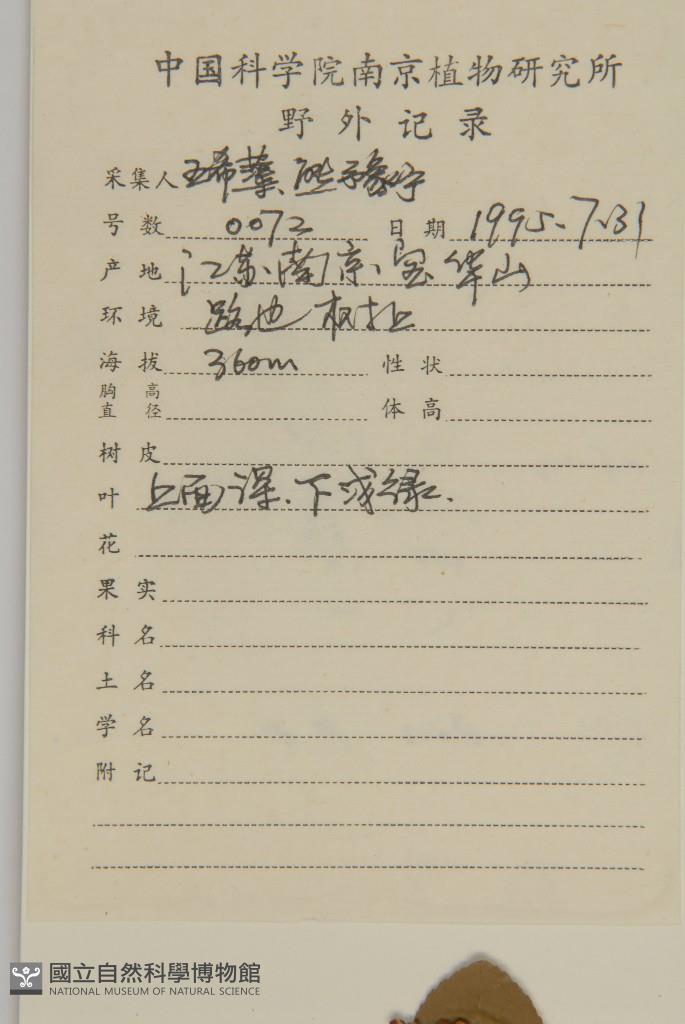 中国科学院南京植物研究所
野外记录
采集人 王希蕖、
号数 0072 日期 1995.7.31
产地 江苏.南京.宝华山
环境 路边
海拔 360m 性状
胸高直径 体高
树皮
叶 上面深.下浅绿.
花
果实
科名
土名
学名
附记
國立自然科學博物館
NATIONAL MUSEUM OF NATURAL SCIENCE